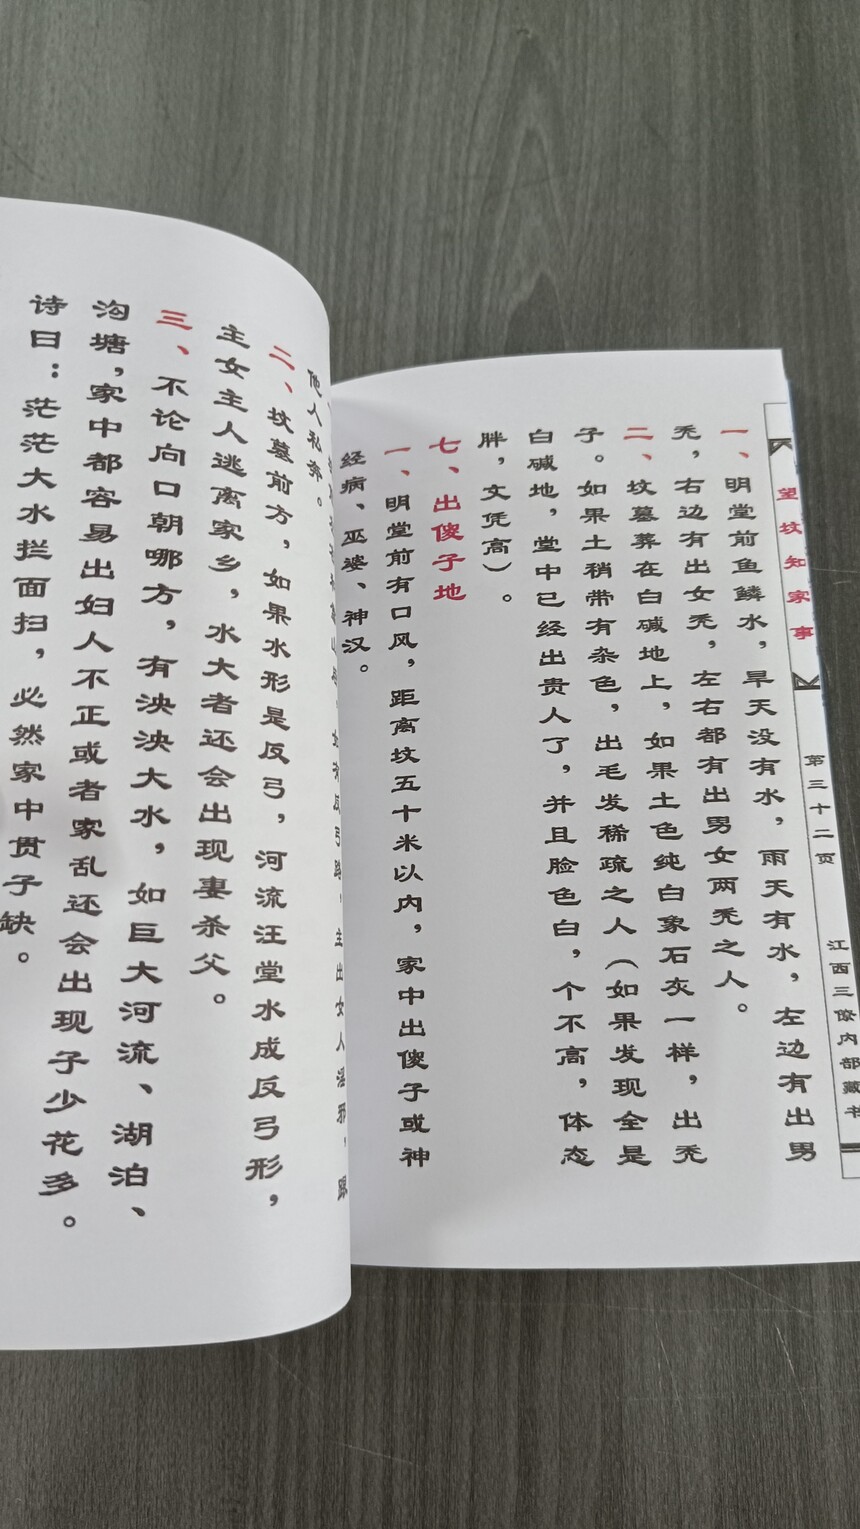 望坟知家事 第三十二页 江西三僚内部藏书
一、明堂前鱼鳞水，旱天没有水，雨天有水，左边有出男
秃，右边有出女秃，左右都有出男女两秃之人。
二、坟墓葬在白碱地上，如果土色纯白象石灰一样，出秃
子。如果土稍带有杂色，出毛发稀疏之人（如果发现全是
白碱地，堂中已经出贵人了，并且脸色白，个不高，体态
胖，文凭高）。
七、出傻子地
一、明堂前有口风，距离坟五十米以内，家中出傻子或神
经病、巫婆、神汉。
反弓路，主出女人淫邪，跟
他人私奔。
二、坟墓前方，如果水形是反弓，河流汪堂水成反弓形，
主女主人逃离家乡，水大者还会出现妻杀父。
三、不论向口朝哪方，有泱泱大水，如巨大河流、湖泊、
沟塘，家中都容易出妇人不正或者家乱还会出现子少花多。
诗曰：茫茫大水拦面扫，必然家中贯子缺。